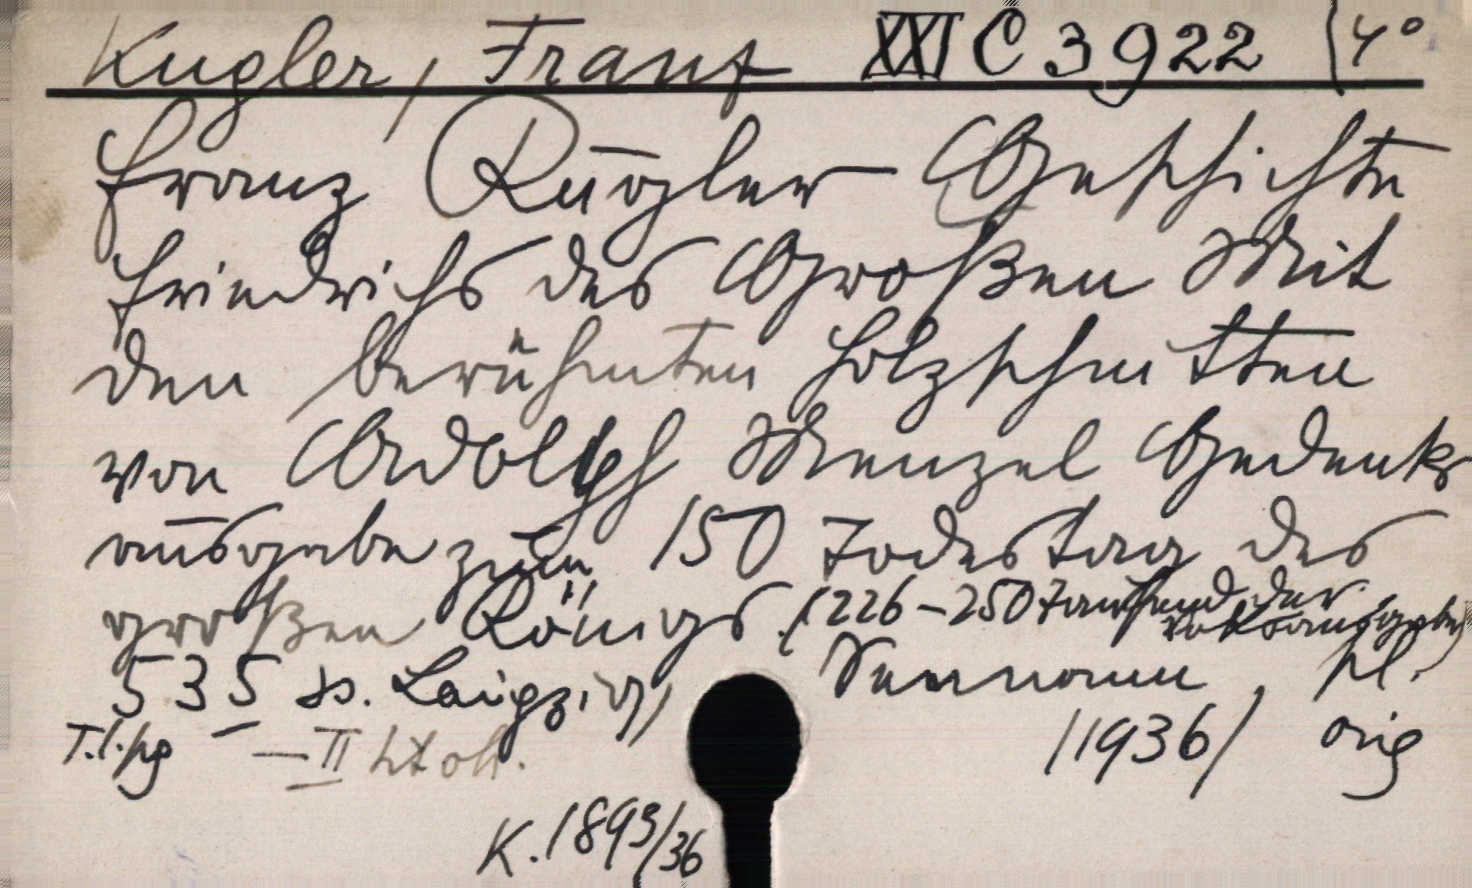 Kugler, Franz XXI C 3922 4°
Franz Kugler Geschichte
Friedrichs des Großen Mit
den berühmten Holzschnitten
von Adolph Menzel Gedenk
ausgabe zum 150 Todestag des
großen Königs. (226-250 Tausend der
Volksausgabe)
535 ss. Leipzig, pl.
T. l. pg — II
/1936/ orig
K. 1893/36